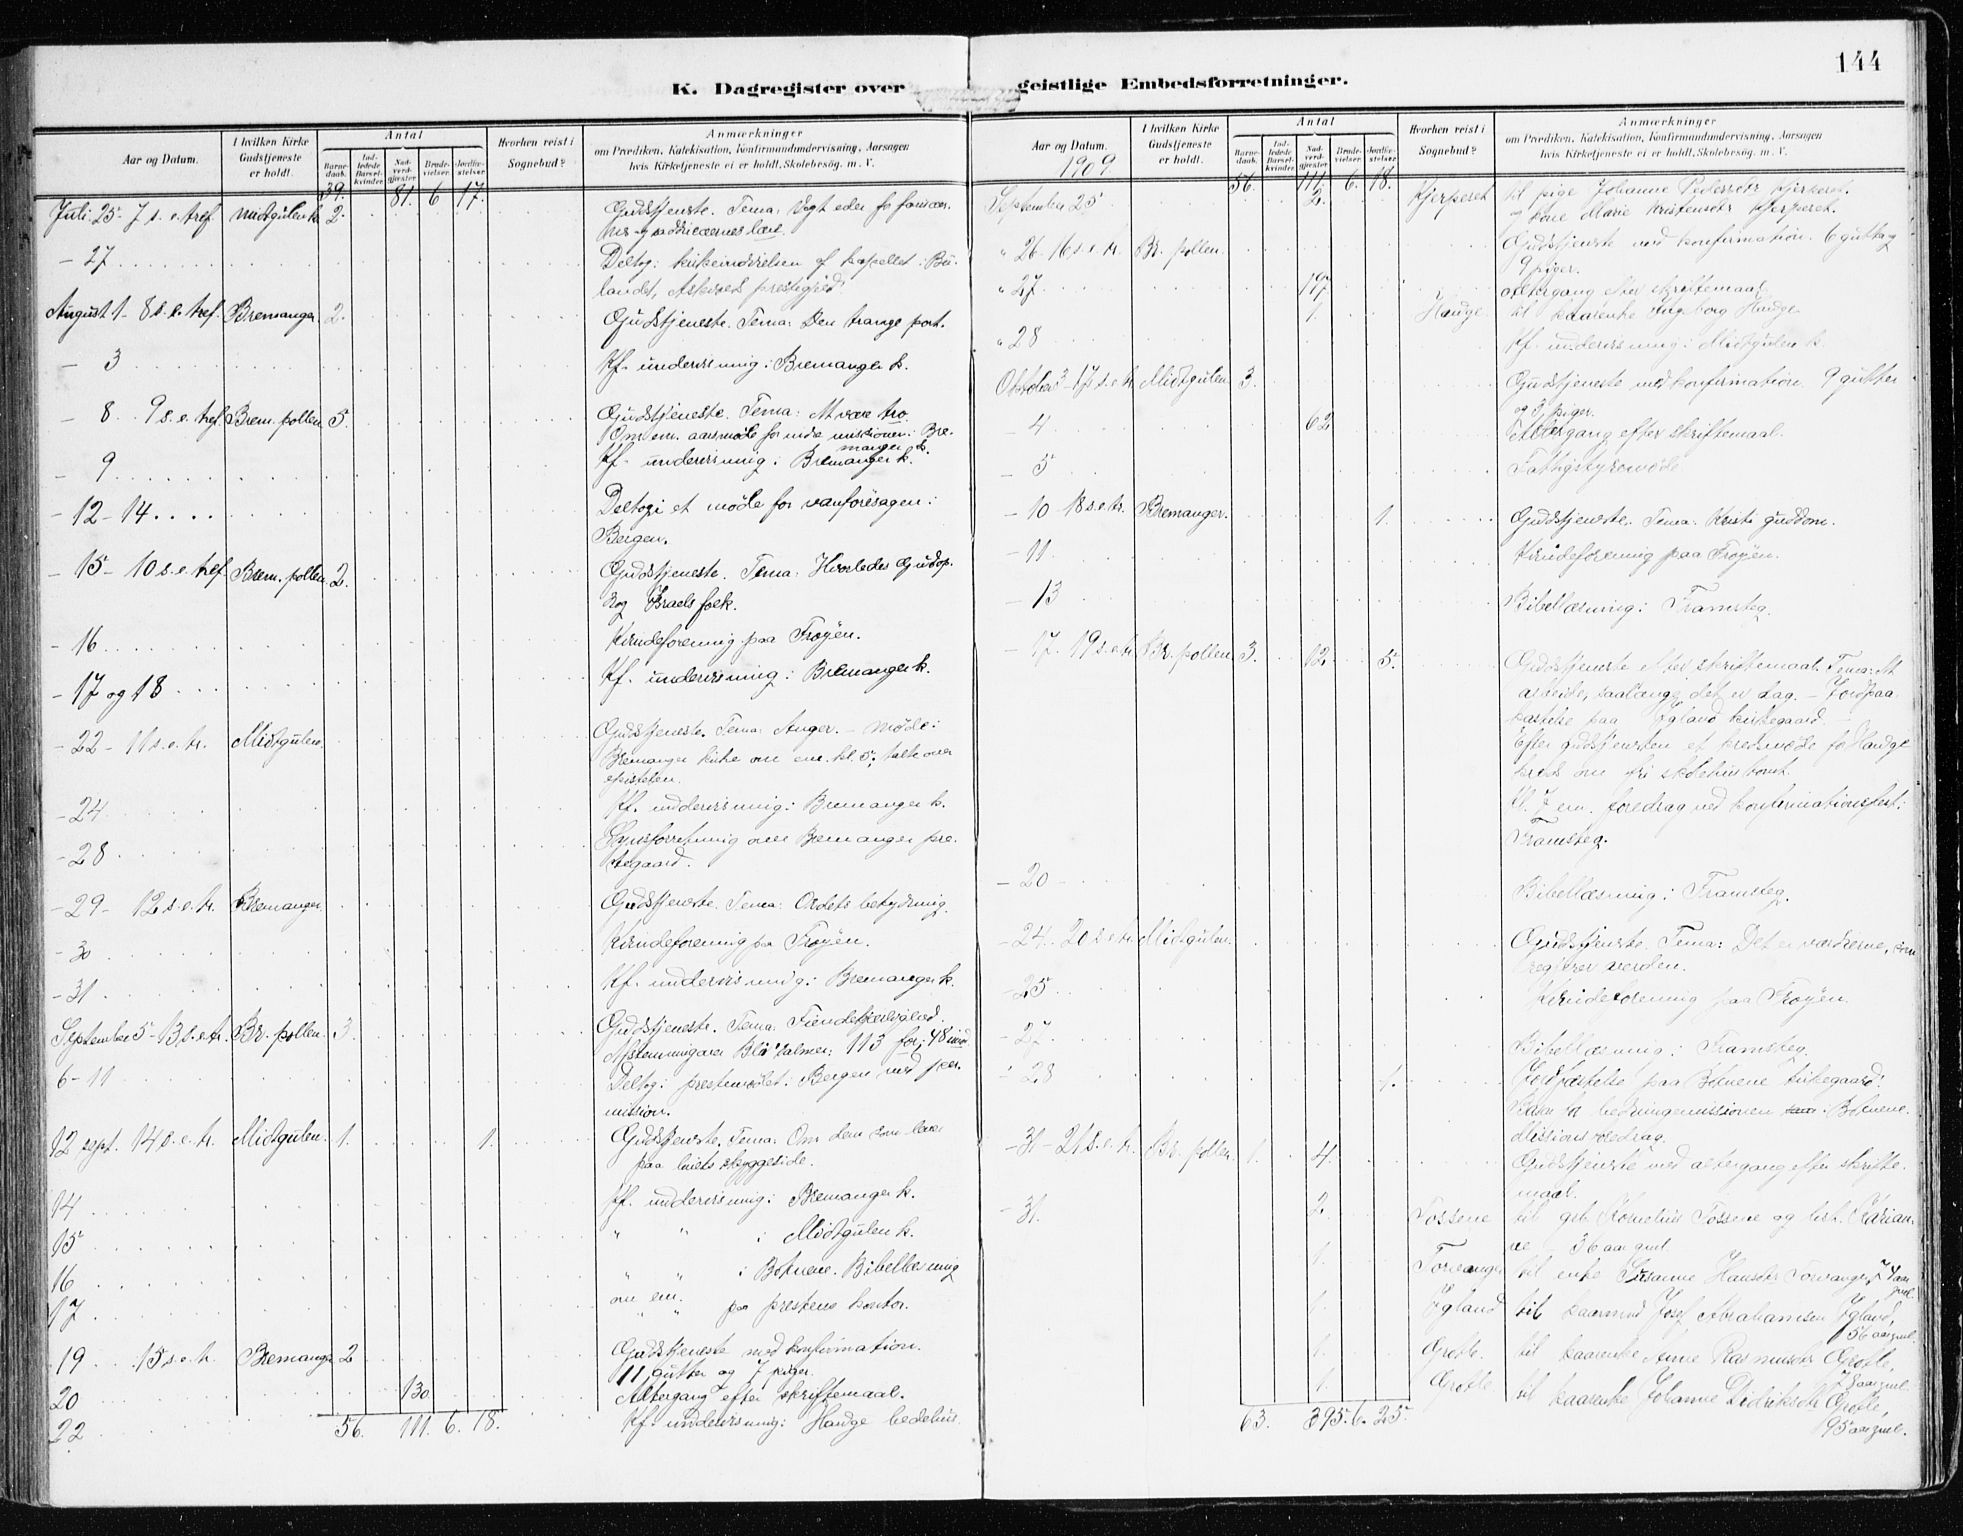 144
K. Dagregister over geistlige Embedsforretninger.
Aar og Datum.
I hvilken Kirke Gudstjeneste er holdt.
Antal
Barnedaab.
Indledede Barselkvinder.
Nadverdgjæster.
Brudevielser.
Jordfæstelser.
Hvorhen reist i Sognebud?
Anmærkninger
om Prædiken, Katekisation, Konfirmandundervisning, Aarsagen
hvis Kirketjeneste ei er holdt, Skolebesøg. m. V.
39. 81. 6 17.
Juli 25- 7 s. e. tref. Midtgulen k. 2. Gudstjeneste. Tema: Vogt eder for farisæer-
nes og læil.
- 27 Deltog i kirkeindvielsen af kapellet i Bu-
landet, Askvold prestegjeld
August 1- 8 s. e. tref. Bremanger 2. Gudstjeneste. Tema: Den trange port.
- 3 Kf. undervisning i Bremanger k.
- 8 9 s. e. tref. Brem. pollen 5. Gudstjeneste. Tema: At være tro
Om em. aarsmøde for indremissionen i Bre-
manger k.
- 9 Kf. undervisning i Bremanger k.
- 12-14 Deltog i et møde for vanføresagen i
Bergen.
- 15- 10 s. e. tref. Brem. pollen 2. Gudstjeneste. Tema: Hvorledes Gud op-
drog Israels folk.
- 16 Kvindeforening paa Frøyen.
- 17 og 18 Kf. undervisning i Bremanger k.
- 22- 11 s. e. tr. Midtgulen. Gudstjeneste. Tema: Anger. - Møde i
Bremanger kirke om em. kl. 5, talte over
epistelen.
- 24 Kf. undervisning i Bremanger k.
- 28 Synsforretning over Bremanger pre-
stegaard.
- 29- 12 s. e. tr. Bremanger. Gudstjeneste. Tema: Ordets betydning.
- 30 Kvindeforening paa Frøyen.
- 31 Kf. undervisning i Bremanger k.
September 5- 13 s. e. tr. Br. pollen. 3. Gudstjeneste. Tema: Fiendekjærlighed.
Afstemning over Blix' salmer: 113 for, 48 imod
6-11 Deltog i prestemødet i Bergen, med per-
mission.
12 sept. 14 s. e. tr. Midtgulen. 1. 1. Gudstjeneste. Tema: Om dem som lever
paa livets skyggeside.
14 Kf. undervisning i Bremanger k.
15 " " i Midtgulen k.
16 " " i Botnene. Bibellæsning
om em.
17 " " paa prestens kontor.
19 15 s. e. tr. Bremanger 2 Gudstjeneste med konfirmation.
11 gutter og 7 piger.
20 130 Altergang efter skriftemaal.
22 Kf. undervisning i Hauge bedehus.
56. 111. 6. 18.
Aar og Datum.
1909
I hvilken Kirke Gudstjeneste er holdt.
Antal
Barnedaab.
Indledede Barselkvinder.
Nadverdgjæster.
Brudevielser.
Jordfæstelser.
Hvorhen reist i Sognebud?
Anmærkninger
om Prædiken, Katekisation, Konfirmandundervisning, Aarsagen
hvis Kirketjeneste ei er holdt, Skolebesøg. m. V.
56. 111. 6. 18.
September 25 2. Kjerperet til pige Johanne Pedersdtr Kjerperet.
og kone Marie Kristensdtr Kjerperet.
" 26- 16 s. e. tr. Br. pollen. Gudstjeneste med konfirmation. 6 gutter og
9 piger.
" 27 197 Altergang efter skriftemaal
1 Hauge til kaarenke Ingeborg Hauge
" 28 Kf. undervisning i Midtgulen k.
Oktober 3- 17 s. e. tr. Midtgulen 3. Gudstjeneste med konfirmation. 9 gutter
og 3 piger.
- 4 62 Altergang efter skriftemaal.
- 5 Fattigstyremøde
- 10 18 s. e. tr. Bremanger. 1. Gudstjeneste. Tema: Kristi guddom.
- 11 Kvindeforening paa Frøyen.
- 13 Bibellæsning i Framsteg.
- 17. 19 s. e. tr. Br. pollen 3. 12. 5. Gudstjeneste efter skriftemaal. Tema: At
arbeide, saalænge det er dag. - Jordpaa-
kastelse paa Igland kirkegaard. -
Efter gudstjenesten et kredsmøde for Hauge
kreds om skolehustomt.
Kl. 7 em. foredrag ved konfirmationsfest i
Framsteg.
- 20 - Bibellæsning i Framsteg.
- 24. 20 s. e. tr. Midtgulen. Gudstjeneste. Tema: Det er værdierne, som
regjerer verden.
- 25 Kvindeforening paa Frøyen.
- 27. Bibellæsning i Framsteg.
- 28 1. Jordfæstelse paa Botnene kirkegaard.
Basar for hedningemissionen i Botnene.
Missionsforedrag.
- 31- 21 s. e. tr. Br. pollen 1. 4. Gudstjeneste med altergang efter skrifte-
maal.
- 31. 2. Fossene til gbr. Kornelius Fossene og hst. Karian-
ne 36 aar gml.
1. Torvanger til enke Susanne Hansdtr Torvanger, 74 aar
gml.
1. Igland til kaarmand Josef Abrahamsen Igland,
56 aar gml.
1. Grotle. til kaarenke Anne Rasmusdtr Grotle,
78 aar gml.
1. Grotle. til kaarenke Johanne Didriksdtr Grotle,
95 aar gml.
63. 395. 6. 25.